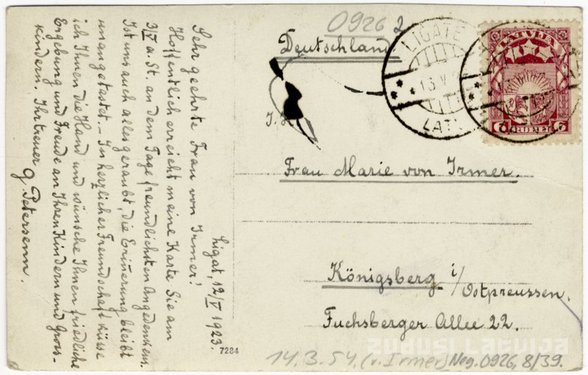 Ligat, 12/V 1923.
Sehr geehrte Frau von Irmer!
Hoffentlich erreicht meine Karte Sie am
3/V a. St. an dem Tage freundlichsten Angedenkens.
Ist uns auch alles geraubt, die Erinnerung bleibt
unangetastet. – In herzlicher Freundschaft küsse
ich Ihnen die Hand und wünsche Ihnen friedliche
Ergebung und Freude an Ihren Kindern und Gross-
kindern. Ihr treuer
Petersenn.
0926 2
Deutschland
LIGATE
13.V
LATV
LATVIJA
6 6
Frau Marie von Irmer.
Königsberg i/
Ostpreussen.
Fuchsberger Allee 22.
7284
ZUDUSI LATVIJA
14.3.54. (v. Irmer) Neg. 0926, 8/39.